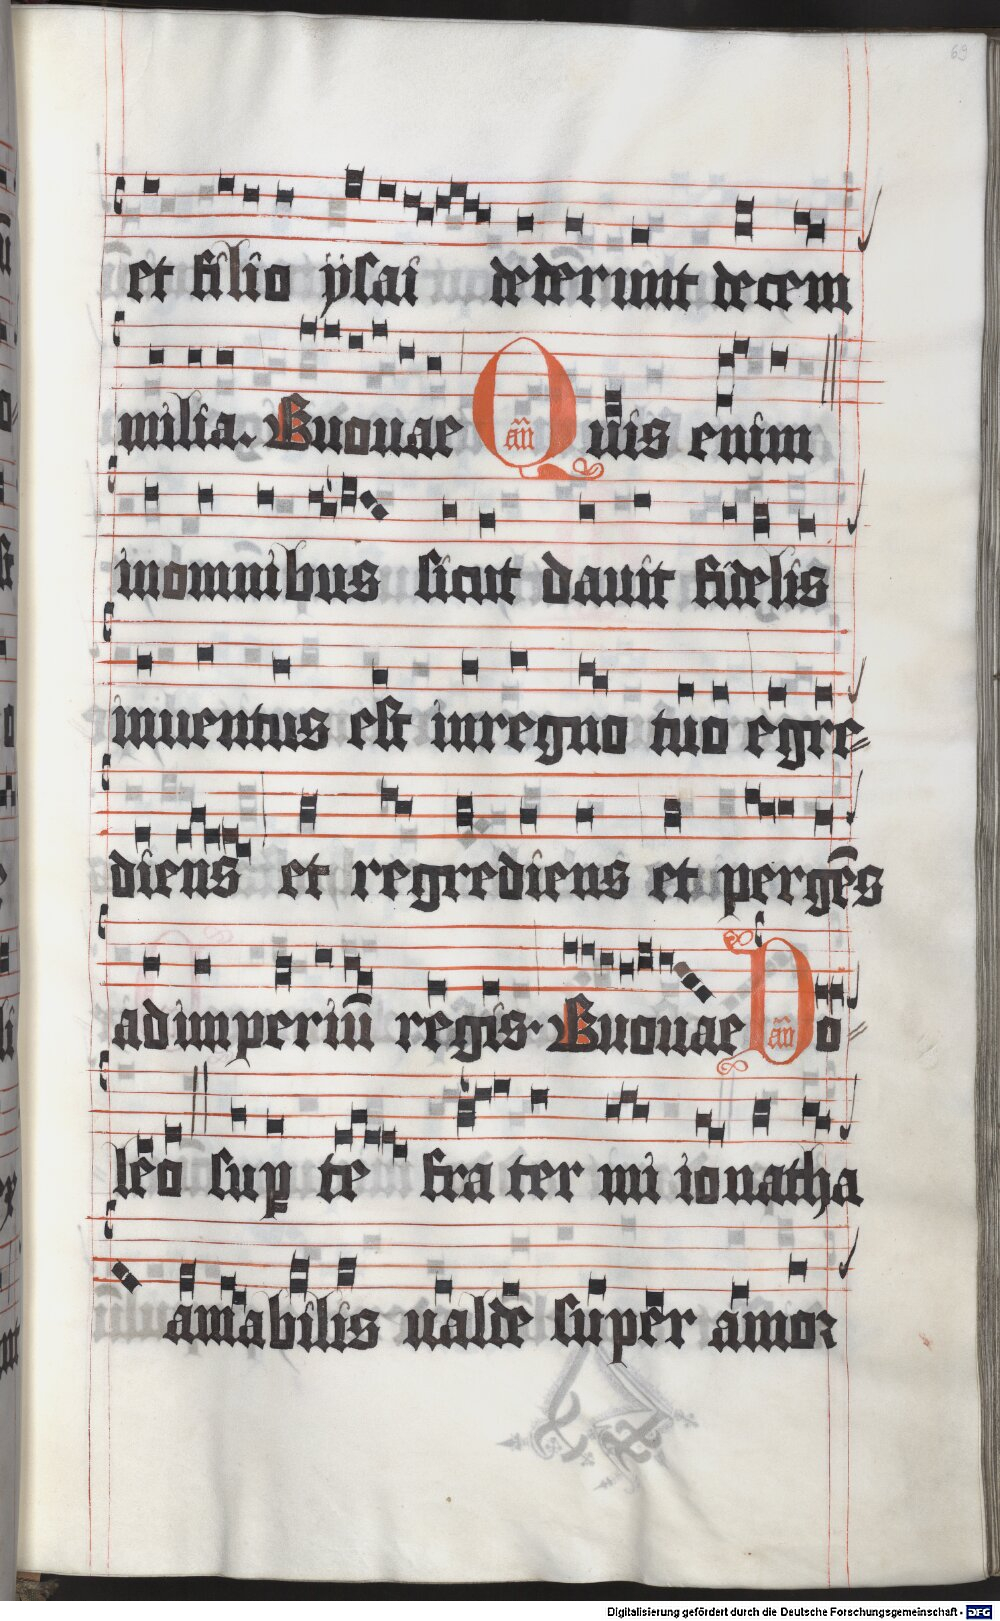 69
et filio ysai dederunt decem
milia. Euouae an̄ Quis enim
inomnibus sicut dauit fidelis
inuentus est inregno tuo egre
diens et regrediens et pergēs
ad imperiū regis. Euouae an̄ Do
leo sup te frater mi ionatha
amabilis ualde super amor
Digitalisierung gefördert durch die Deutsche Forschungsgemeinschaft - DFG